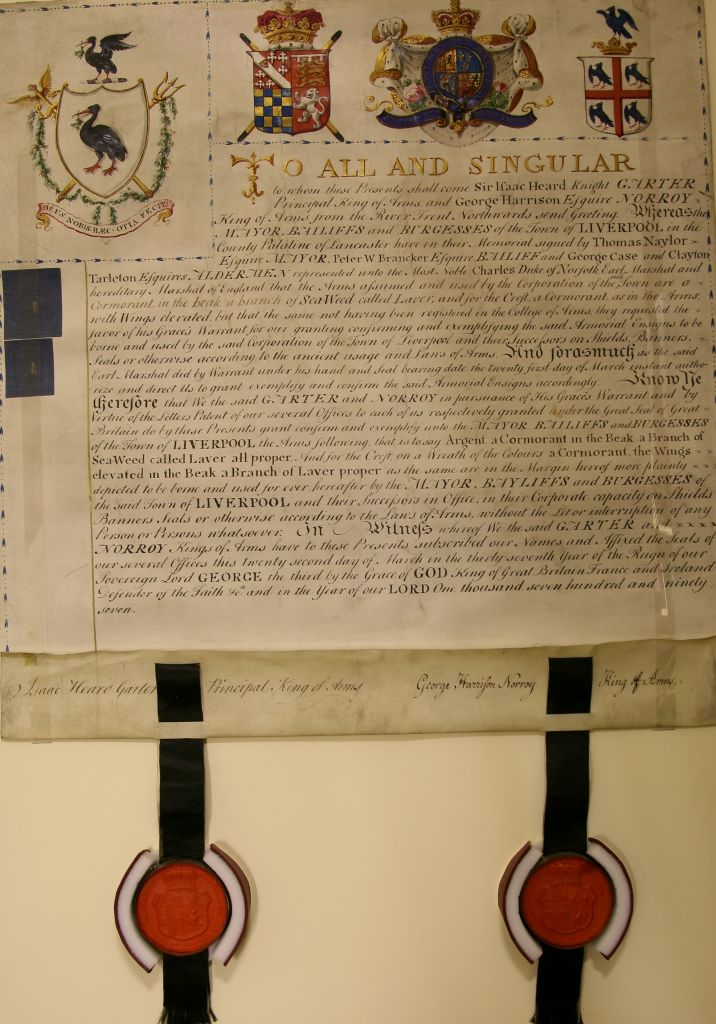 DEUS NOBIS HÆC OTIA FECIT
TO ALL AND SINGULAR
to whom these Presents shall come Sir Isaac Heard Knight GARTER
Principal King of Arms, and George Harrison Esquire NORROY
King of Arms, from the River Trent Northwards send Greeting. Whereas the
MAYOR, BAILIFFS and BURGESSES of the Town of LIVERPOOL in the
County Palatine of Lancaster have in their Memorial signed by Thomas Naylor
Esquire MAYOR, Peter W Brancker Esquire BAILIFF and George Case and Clayton
Tarleton Esquires, ALDERMEN represented unto the Most Noble Charles Duke of Norfolk Earl Marshal and
hereditary Marshal of England that the Arms assumed and used by the Corporation of the Town are a
Cormorant, in the beak a branch of Sea Weed called Laver, and for the Crest, a Cormorant, as in the Arms,
with Wings elevated, but that the same not having been registered in the College of Arms, they requested the
favor of his Grace's Warrant for our granting confirming and exemplifying the said Armorial Ensigns to be
borne and used by the said Corporation of the Town of Liverpool and their Successors on Shields, Banners,
Seals or otherwise according to the ancient usage and Laws of Arms. And forasmuch as the said
Earl Marshal did by Warrant under his hand and Seal bearing date the twenty first day of March instant autho-
rize and direct Us to grant exemplify and confirm the said Armorial Ensigns accordingly. Know Ye
therefore that We the said GARTER and NORROY in pursuance of His Grace's Warrant and by
Virtue of the Letters Patent of our several Offices to each of us respectively granted under the Great Seal of Great
Britain do by these Presents grant confirm and exemplify unto the MAYOR BAILIFFS and BURGESSES
of the Town of LIVERPOOL the Arms following, that is to say Argent a Cormorant in the Beak a Branch of
Sea Weed called Laver all proper, And for the Crest on a Wreath of the Colours a Cormorant, the Wings
elevated in the Beak a Branch of Laver proper as the same are in the Margin hereof more plainly
depicted to be borne and used for ever hereafter by the MAYOR, BAYLIFFS and BURGESSES of
the said Town of LIVERPOOL and their Successors in Office, in their Corporate capacity on Shields
Banners Seals or otherwise according to the Laws of Arms, without the Let or interruption of any
Person or Persons whatsoever. In Witness whereof We the said GARTER and
NORROY Kings of Arms have to these Presents subscribed our Names and Affixed the Seals of
our several Offices this twenty second day of March in the thirty seventh Year of the Reign of our
Sovereign Lord GEORGE the third by the Grace of GOD King of Great Britain France and Ireland
Defender of the Faith &c. and in the Year of our LORD One thousand seven hundred and ninety
seven.
Isaac Heard Garter Principal King of Arms George Harrison Norroy King of Arms.